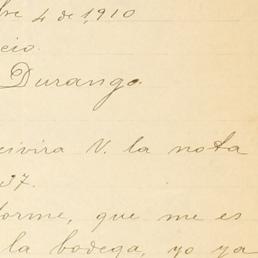 bre 4 de 1910
cio.
Durango.
civira V. la nota
37.
forme, que me es
la bodega, yo ya